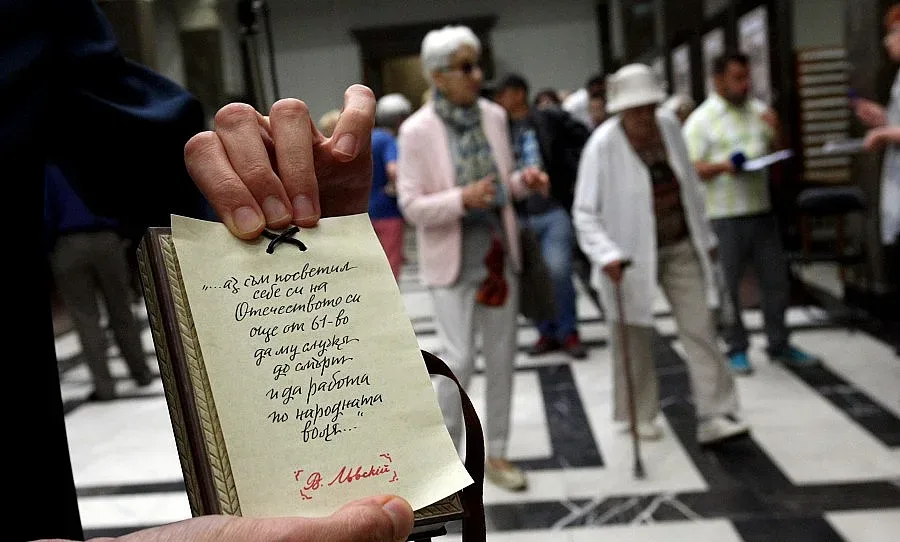 „...аз съм посветил
себе си на
Отечеството си
още от 61-во
да му служа
до смърт
и да работа
по народната
воля..."
В. Львскій